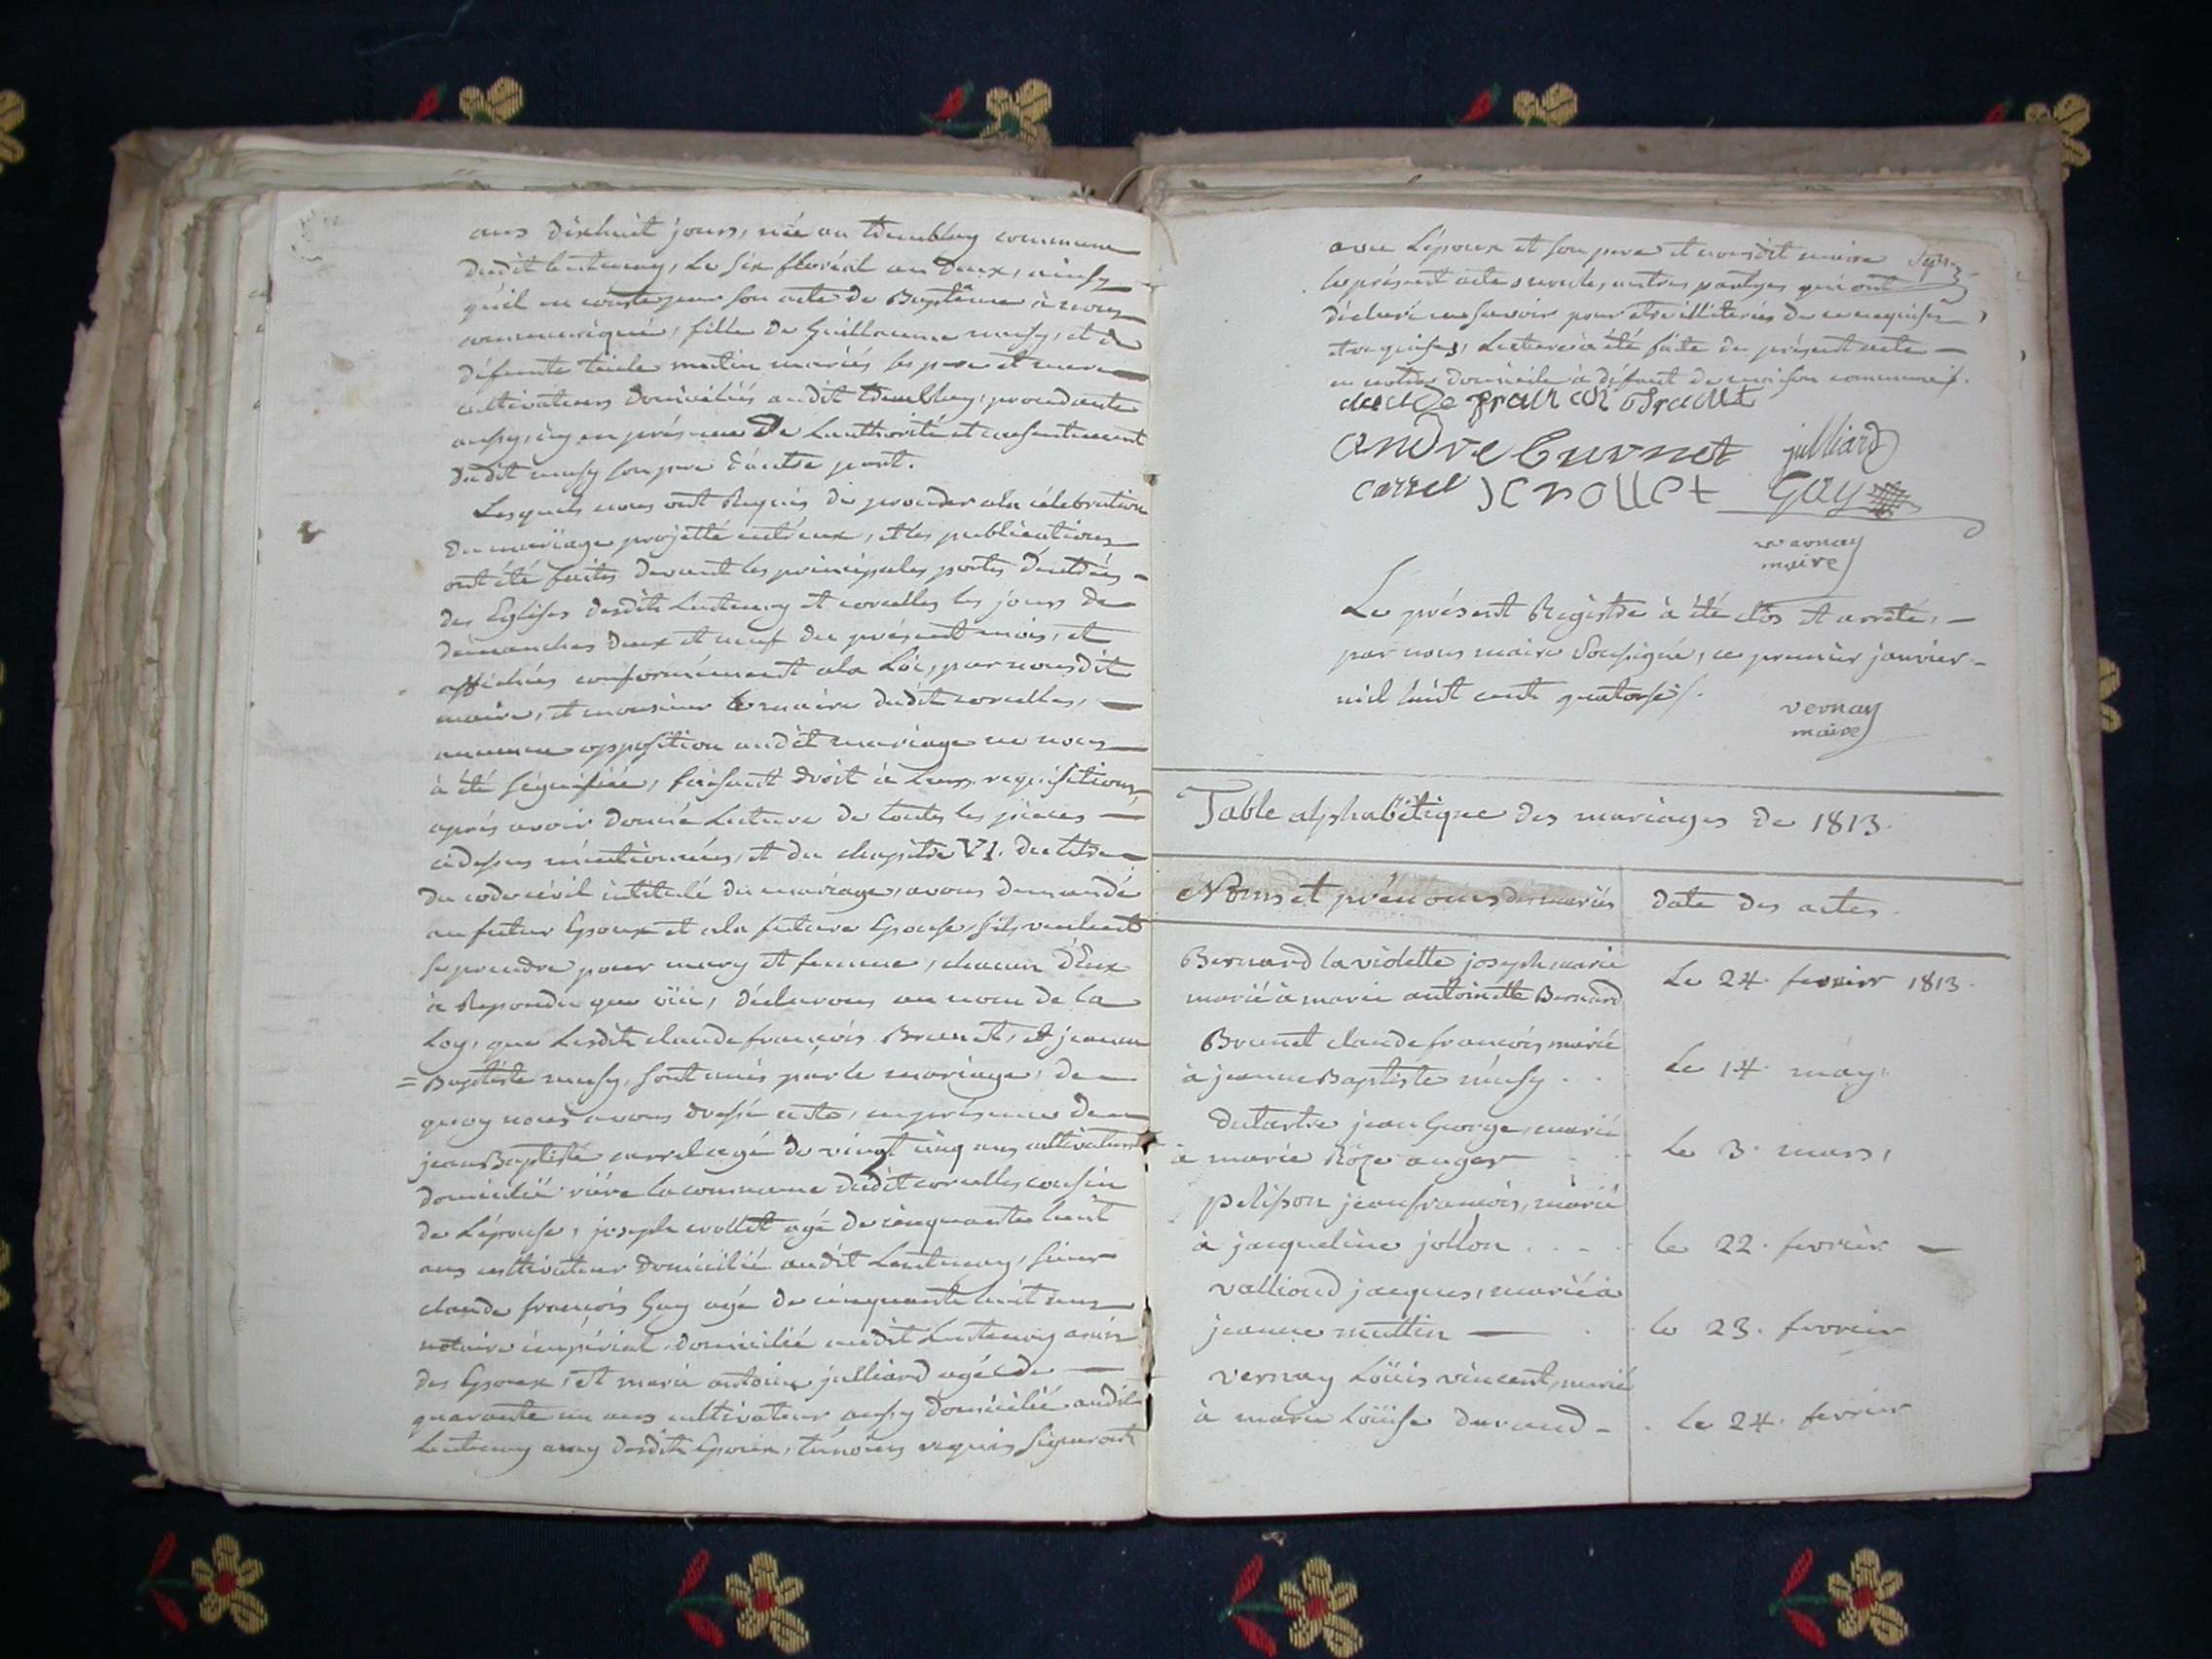 ans dixhuit jours, née au tremblay commune
dudit lentenay, le six floréal an deux, ainsy
qu'il en conste par son acte de Baptême à nous
communiqué, fille de Guillaume musy, et de
défunte mutin mariés ses pere et mere
cultivateurs domiciliés audit tremblay, procedante
aussy, icy en présence de Lauthorité et consentement
dudit musy son pere d'autre part.
Lesquels nous ont Requis de proceder ala célebration
du mariage projetté entr'eux, et les publications
ont été faites devant les principales portes d'entrées
des Eglises desdits Lentenay et corcelles les jours de
dimanches deux et neuf du présent mois, et
affichées conformément ala Loi, par nousdit
maire, et monsieur le maire dudit corcelles,
aucune opposition audit mariage ne nous
à été signifiée, faisant droit à Leurs requisitions
aprés avoir donné Lecture de toutes les pieces
cidessus mentionnées, et du chapitre VI. du titre
du code civil intitulé du mariage, avons demandé
au futur Epoux et ala future Epouse, s'ils veulent
se prendre pour mary et femme, chacun d'Eux
à Repondu que oüi, déclarons au nom de la
Loy, que Lesdits claude françois Brunet, et jeanne
= Baptiste musy, sont unis par le mariage, de
quoy nous avons dressé acte, en présence de
jean Baptiste carrel agé de vingt cinq ans cultivateur
domicilié riére la commune dudit corcelles cousin
de L'épouse, joseph crollet agé de cinquante huit
ans cultivateur domicilié audit Lentenay, sieur
claude françois Gay agé de cinquante huit ans
notaire impérial, domicilié audit Lentenay amis
des Epoux, et marie antoine julliard agé de
quarante un ans cultivateur aussy domicilié audit
Lentenay amy desdits Epoux, témoins requis signeront
avec L'époux et son pere et nousdit maire
le présent acte, non les autres parties qui ont
déclaré ne savoir pour etre illiterées de ce enquises
et requises, Lecture à été faite du présent acte
en notre domicile à défaut de maison commune.
claude françois Brunet
andre Burnet julliard
carrel J crollet Gay
vernay
maire
Le présent Registre à été clos et arreté,
par nous maire soussigné, ce premier janvier
mil huit cent quatorse.
vernay
maire
Table alphabétique des mariages de 1813.
Noms et prénoms des mariés date des actes.
Bernard la violette joseph marie
marié à marie antoinette Bernard Le 24. fevrier 1813.
Brunet claude françois marié
à jeanne Baptiste musy . . Le 14. may,
dutartre jean George, marié
à marie Rôze auger Le 3. mars,
pelisson jean françois, marié
à jacqueline jollon . . . le 22. fevrier
valliand jacques, marié à
jeanne muttin le 23. fevrier
vernay Loüis vincent, marié
à marie Loüise durand - Le 24. fevrier